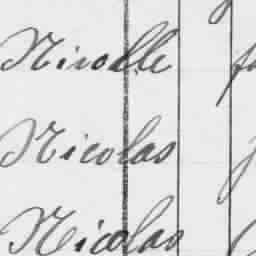 Nicolle
Nicolas
Nicolas